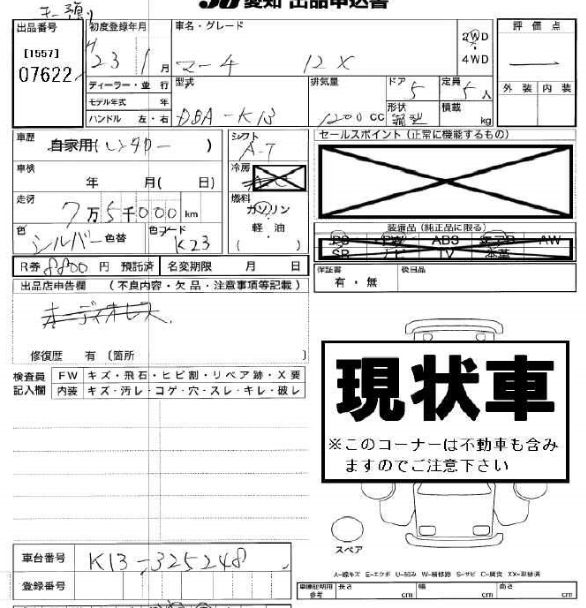 JU 愛知 出品申込書
出品番号
[1557]
07622
初度登録年月
H 23 1 月
ディーラー・並行
モデル年式 年
ハンドル 左・右
車名・グレード
マーチ 12X
2WD
4WD
評価点
外装 内装
型式
DBA-K13
排気量
1200 CC
ドア
5
形状
定員
5 人
積載
kg
車歴
自家用(レンタカー )
車検
年 月( 日)
走行
7万5千000km
色
シルバー 色替
色コード
K23
シフト
A-T
冷房
燃料
ガソリン
軽・油
( )
セールスポイント(正常に機能するもの)
装備品(純正品に限る)
ABS AW
SR ナビ TV 本革
保証書
有・無
後日品
R券 8800 円 預託済 名変期限 月 日
出品店申告欄 (不良内容・欠品・注意事項等記載)
オーディオレス
修復歴 有〔箇所 〕
検査員
記入欄
FW キズ・飛石・ヒビ割・リペア跡・X要
内装 キズ・汚レ・コゲ・穴・スレ・キレ・破レ
現状車
※このコーナーは不動車も含み
ますのでご注意下さい
スペア
A-線キズ E-エクボ U-凹み W-補修跡 S-サビ C-腐食 XX-交換済
車台番号 K13-325248
登録番号
車庫証明用
参考
長さ cm
幅 cm
高さ cm